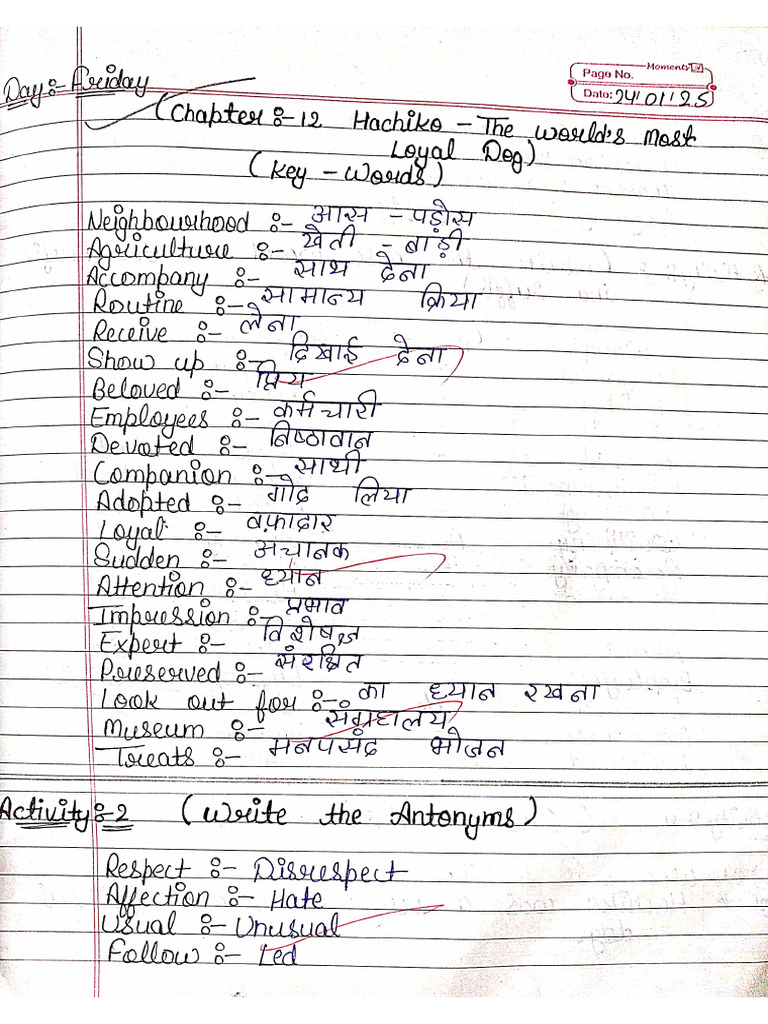 Day:- Friday
Moments
Page No.
Date: 24'01'25
(Chapter:-12 Hachiko - The World's Most
Loyal Dog)
(Key - Words)
Neighbourhood :- आस - पड़ोस
Agriculture :- खेती - बाड़ी
Accompany :- साथ देना
Routine :- सामान्य क्रिया
Receive :- लेना
Show up :- दिखाई देना
Beloved :- प्रिय
Employees :- कर्मचारी
Devoted :- निष्ठावान
Companion :- साथी
Adopted :- गोद लिया
Loyal :- वफ़ादार
Sudden :- अचानक
Attention :- ध्यान
Impression :- प्रभाव
Expert :- विशेषज्ञ
Preserved :- संरक्षित
Look out for :- का ध्यान रखना
Museum :- संग्रहालय
Treats :- मनपसंद भोजन
Activity:-2 (Write the Antonyms)
Respect :- Disrespect
Affection :- Hate
Usual :- Unusual
Follow :- Led